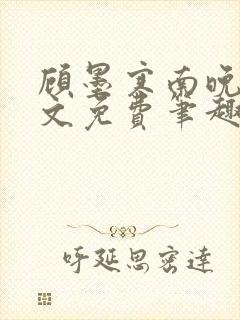 顾墨寒南晚
文免费笔趣
呼延思密達